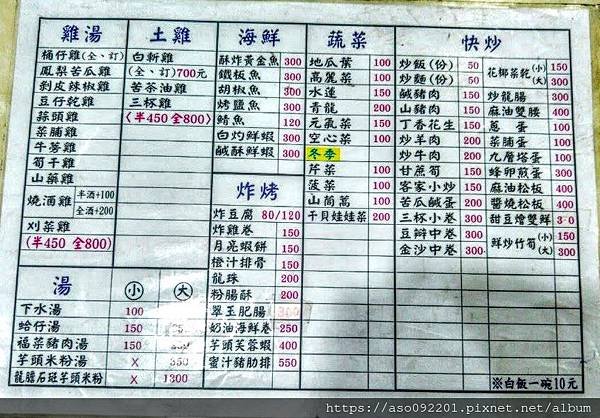 雞湯
桶仔雞(全、訂)
鳳梨苦瓜雞
剝皮辣椒雞
豆仔乾雞
蒜頭雞
菜脯雞
牛蒡雞
筍干雞
山藥雞
燒酒雞 半酒+100 全酒+200
刈菜雞
(半450 全800)
土雞
白斬雞
(全、訂)700元
苦茶油雞
三杯雞
(半450 全800)
海鮮
酥炸黃金魚 300
鐵板魚 300
胡椒魚 300
烤鹽魚 300
鯖魚 120
白灼鮮蝦 300
鹹酥鮮蝦 300
炸烤
炸豆腐 80/120
炸雞卷 150
月亮蝦餅 150
橙汁排骨 150
龍珠 200
粉腸酥 200
翠玉肥腸
奶油海鮮卷 250
芋頭芙蓉蝦 400
蜜汁豬肋排 550
蔬菜
地瓜葉 100
高麗菜 100
水蓮 150
青龍 200
元氣菜 150
空心菜 100
冬季
芹菜 100
菠菜 100
山茼蒿 100
干貝娃娃菜 200
快炒
炒飯(份) 50
炒麵(份) 50
鹹豬肉 150
山豬肉 150
丁香花生 150
炒羊肉 200
炒牛肉 200
甘蔗筍 150
客家小炒 150
苦瓜鹹蛋 200
三杯小卷 300
豆瓣中卷 300
金沙中卷 300
花椰菜乾 (小) 150 (大) 300
炒龍腸 300
麻油雙腰 400
蔥蛋 100
菜脯蛋 100
九層塔蛋 100
蜂卵煎蛋 300
麻油松板 400
醬燒松板 400
甜豆燴雙鮮
鮮炒竹筍 (小) 150 (大) 300
湯 小 大
下水湯 100
蛤仔湯 150
福菜豬肉湯 150
芋頭米粉湯 X 350
龍膽石斑芋頭米粉 X 1300
※白飯一碗10元
https://aso092201.pixnet.net/album